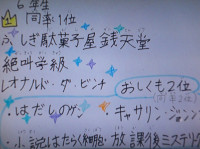 6年生
同率1位
ふしぎ駄菓子屋銭天堂
絶叫学級
レオナルド・ダ・ビンチ
おしくも2位
・はだしのゲン
・キャサリン・ジョンソン
・小説はたらく細胞・放課後ミステリ